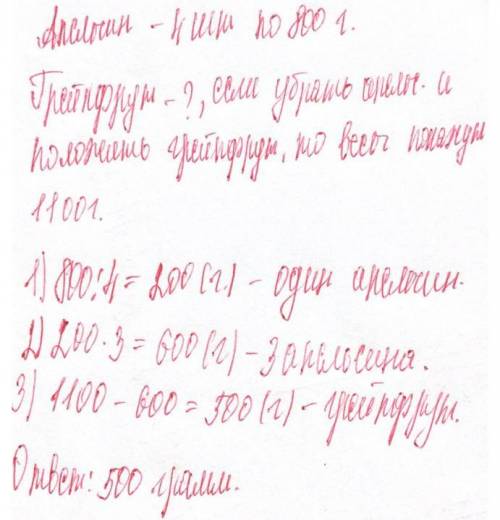 Апельсин - 4 шт по 800 г.
Грейпфрут - ?, если убрать апельс. и
положить грейпфрут, то весы покажут
1100г.
1) 800:4 = 200 (г.) - один апельсин.
2) 200·3 = 600 (г) - 3 апельсина.
3) 1100 - 600 = 500 (г) - грейпфрут.
Ответ: 500 грамм.